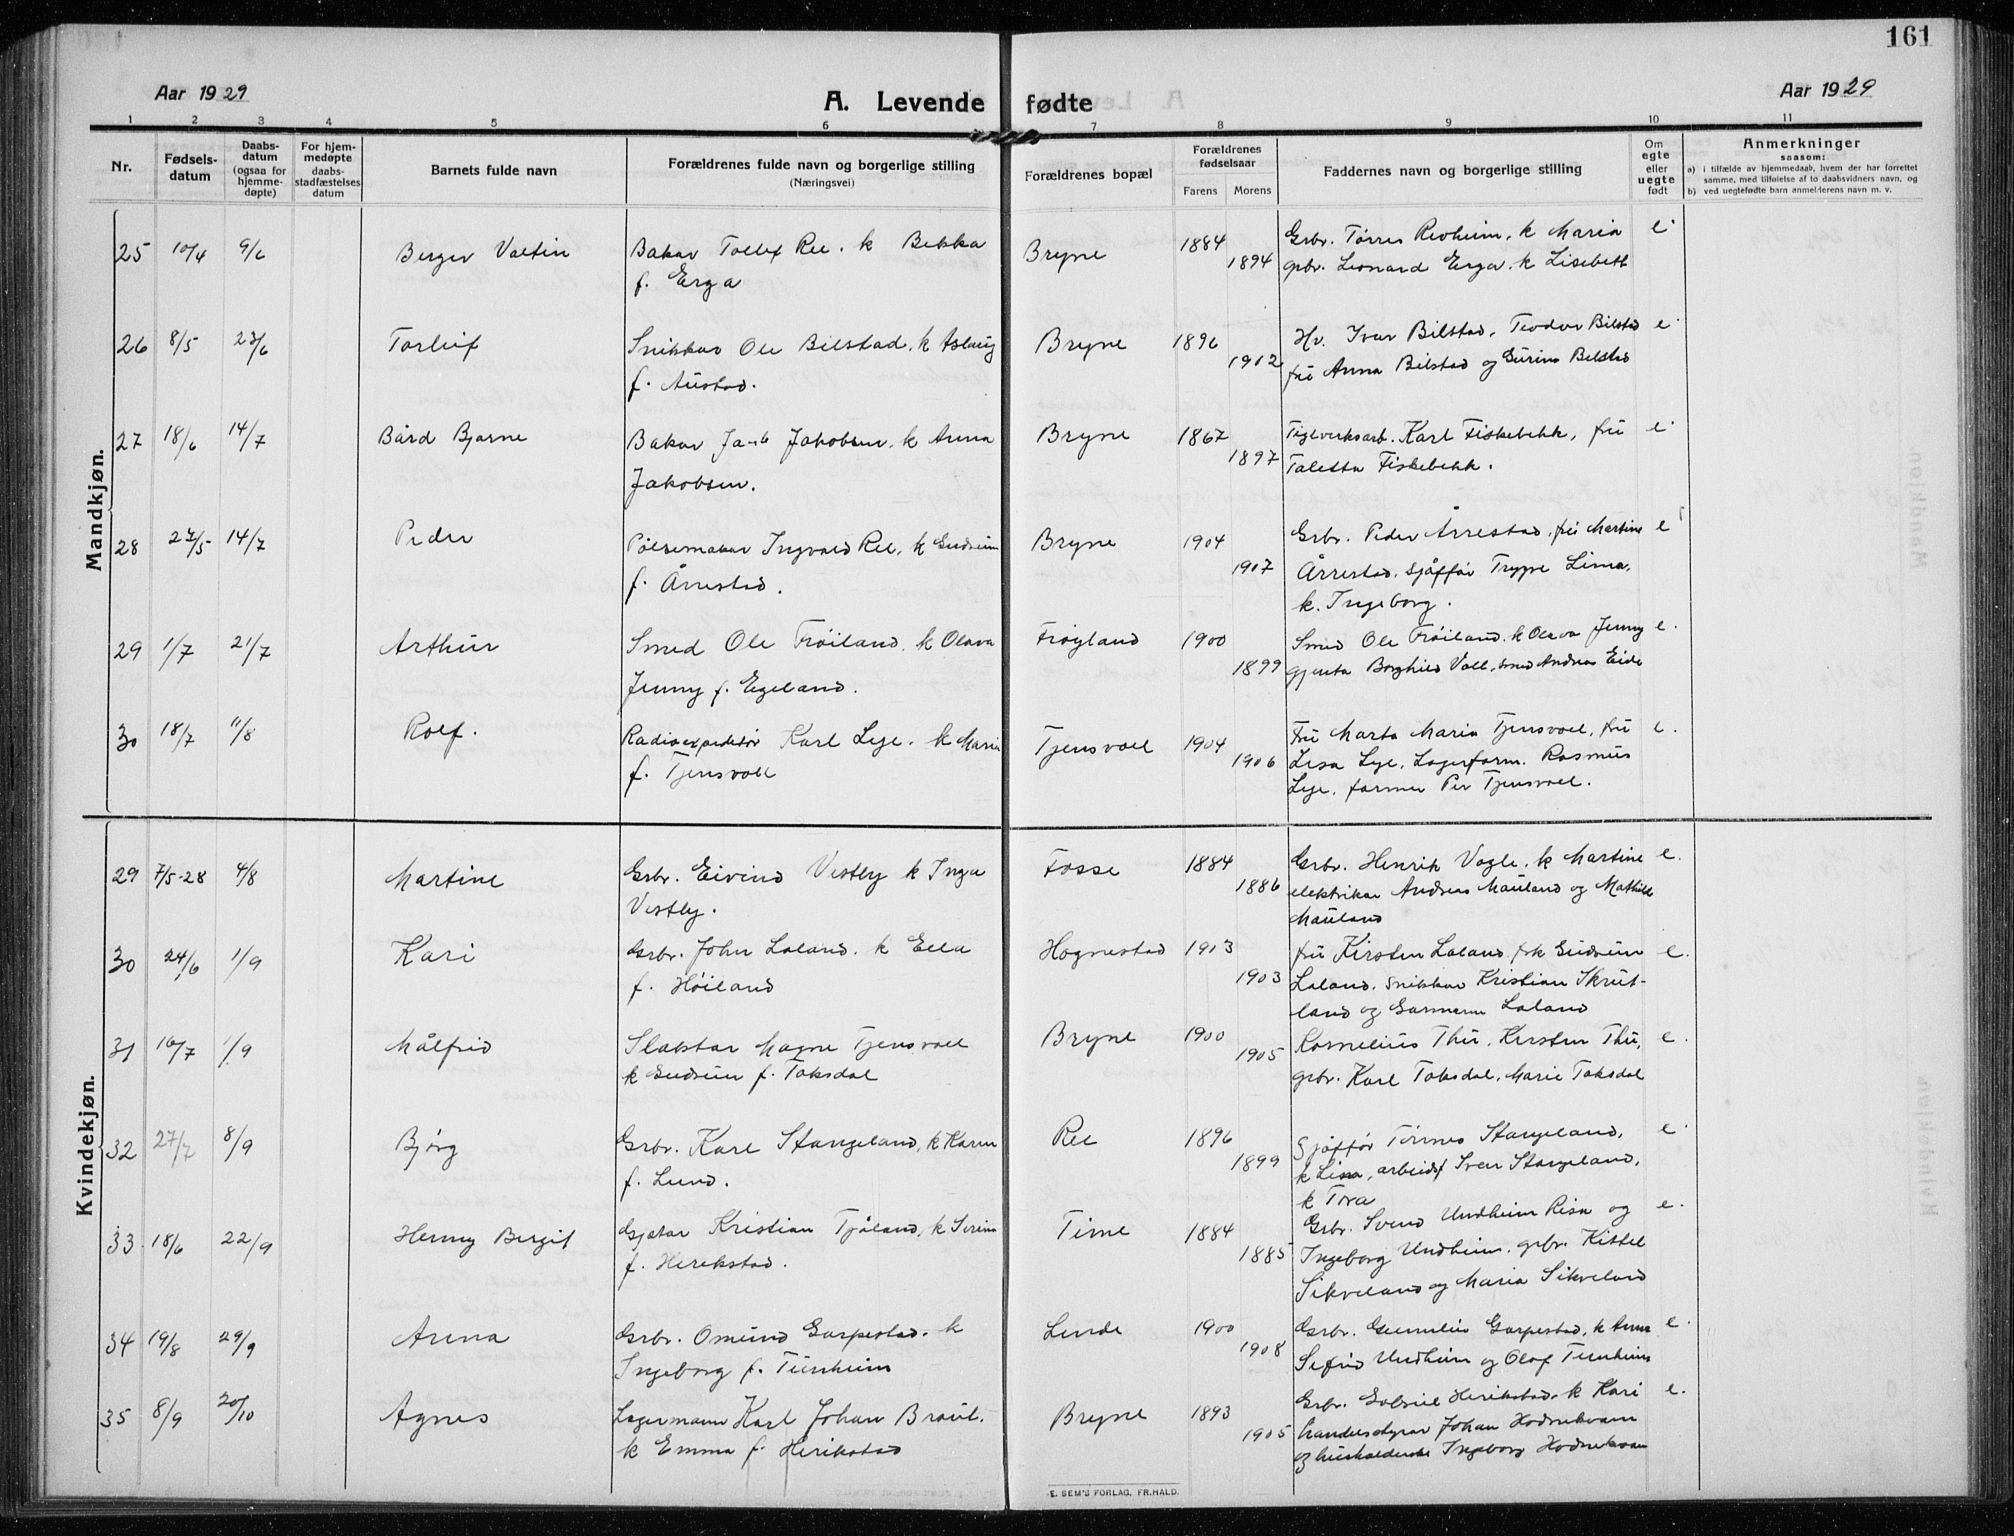 161
Aar 1929
A. Levende fødte
Aar 1929
1 2 3 4 5 6 7 8 9 10 11
Nr.
Fødsels-
datum
Daabs-
datum
(ogsaa for
hjemme-
døpte)
For hjem-
medøpte
daabs-
stadfæstelses
datum
Barnets fulde navn
Forældrenes fulde navn og borgerlige stilling
(Næringsvei)
Forældrenes bopæl
Forældrenes
fødselsaar
Farens Morens
Faddernes navn og borgerlige stilling
Om
egte
eller
uegte
født
Anmerkninger
saasom:
a) i tilfælde av hjemmedaab, hvem der har forrettet
samme, med tilføielse af to daabsvidners navn, og
b) ved uegtefødte barn anmelderens navn m. v.
Mandkjøn.
25 10/4 9/6 Berger Valtin Bakar Tollef Ree. k Bekka Bryne 1884 Grbr. Tørres Revheim, k Maria e.
f. Erga 1894 grbr. Leonard Erga. k Lisebett
26 8/5 23/6 Torleif Snikkar Ole Bilstad, k Aslaug Bryne 1896 Hv. Ivar Bilstad, Teodor Bilstad e.
f. Austad. 1902 fru Anna Bilstad og Gurine Bilstad
27 18/6 14/7 Bård Bjarne Bakar Jacob Jakobsen, k Anna Bryne 1867 Tiglverksarb. Karl Fiskebekk, fru e.
Jakobsen. 1897 Taletta Fiskebekk.
28 27/5 14/7 Peder Pølsemakar Ingvald Ree, k Gudrun Bryne 1904 Grbr. Peder Årrestad, fru Martine e
f. Årrestad. 1907 Årrestad, sjåffør Trygve Lima,
k. Ingeborg.
29 1/7 21/7 Arthur Smed Ole Frøiland, k Olava Frøyland 1900 Smed Ole Frøiland, k Olava Jenny e.
Jenny f. Egeland. 1899 gjenta Borghild Voll, smed Andreas Eide
30 18/7 11/8 Rolf. Radioexpeditør Karl Lye. k Maria Tjensvoll 1904 Fru Marta Maria Tjensvoll, fru e.
f. Tjensvoll 1906 Lisa Lye, Lagerform. Rasmus
Lye, farmer Per Tjensvoll.
Kvindekjøn.
29 7/5-28 4/8 Martine Grbr. Eivind Vestly k Inga Fosse 1884 Grbr. Henrik Vagle, k Martine e.
Vestly. 1886 elektrikar Andreas Mauland og Mathilde
Mauland
30 24/6 1/9 Kari Grbr. John Laland. k Ella Hognestad 1903 fru Kirsten Laland, frk Gudrun e.
f. Høiland 1903 Laland, snikkar Kristian Skret-
land og Laland
31 16/7 1/9 Målfrid Slaktar Magne Tjensvoll Bryne 1900 Kornelius Thu, Kirsten Thu, e.
k Gudrun f. Taksdal 1905 grbr. Karl Taksdal, Marie Taksdal
32 27/7 8/9 Bjørg Grbr. Karl Stangeland, k Karen Ree 1896 Sjåffør Tønnes Stangeland, e.
f. Lund. 1899 k Lina, arbeidsf Sven Stangeland,
k Tora
33 18/6 22/9 Henny Bergit Gjætar Kristian Tjåland, k Serina Time 1884 Grbr. Svend Undheim Risa og e.
f. Herikstad. 1885 Ingeborg Undheim, grbr. Kittel
Sikveland og Maria Sikveland
34 19/8 29/9 Anna Grbr. Omund Garpestad. k Linde 1900 Grbr. Gunnleiv Garpestad, k Anna e.
Ingeborg f. Tunheim 1908 Sefrid Undheim og Olaf Tunheim
35 8/9 20/10 Agnes Lagermann Karl Johan Braut. Bryne 1893 Grbr. Gabriel Herikstad, k Kari e.
k Emma f. Herikstad 1905 handelsstyrar Johan Hodnekvam
og hushalderske Ingeborg Hodnekvam
E. SEM'S FORLAG, FR.HALD.